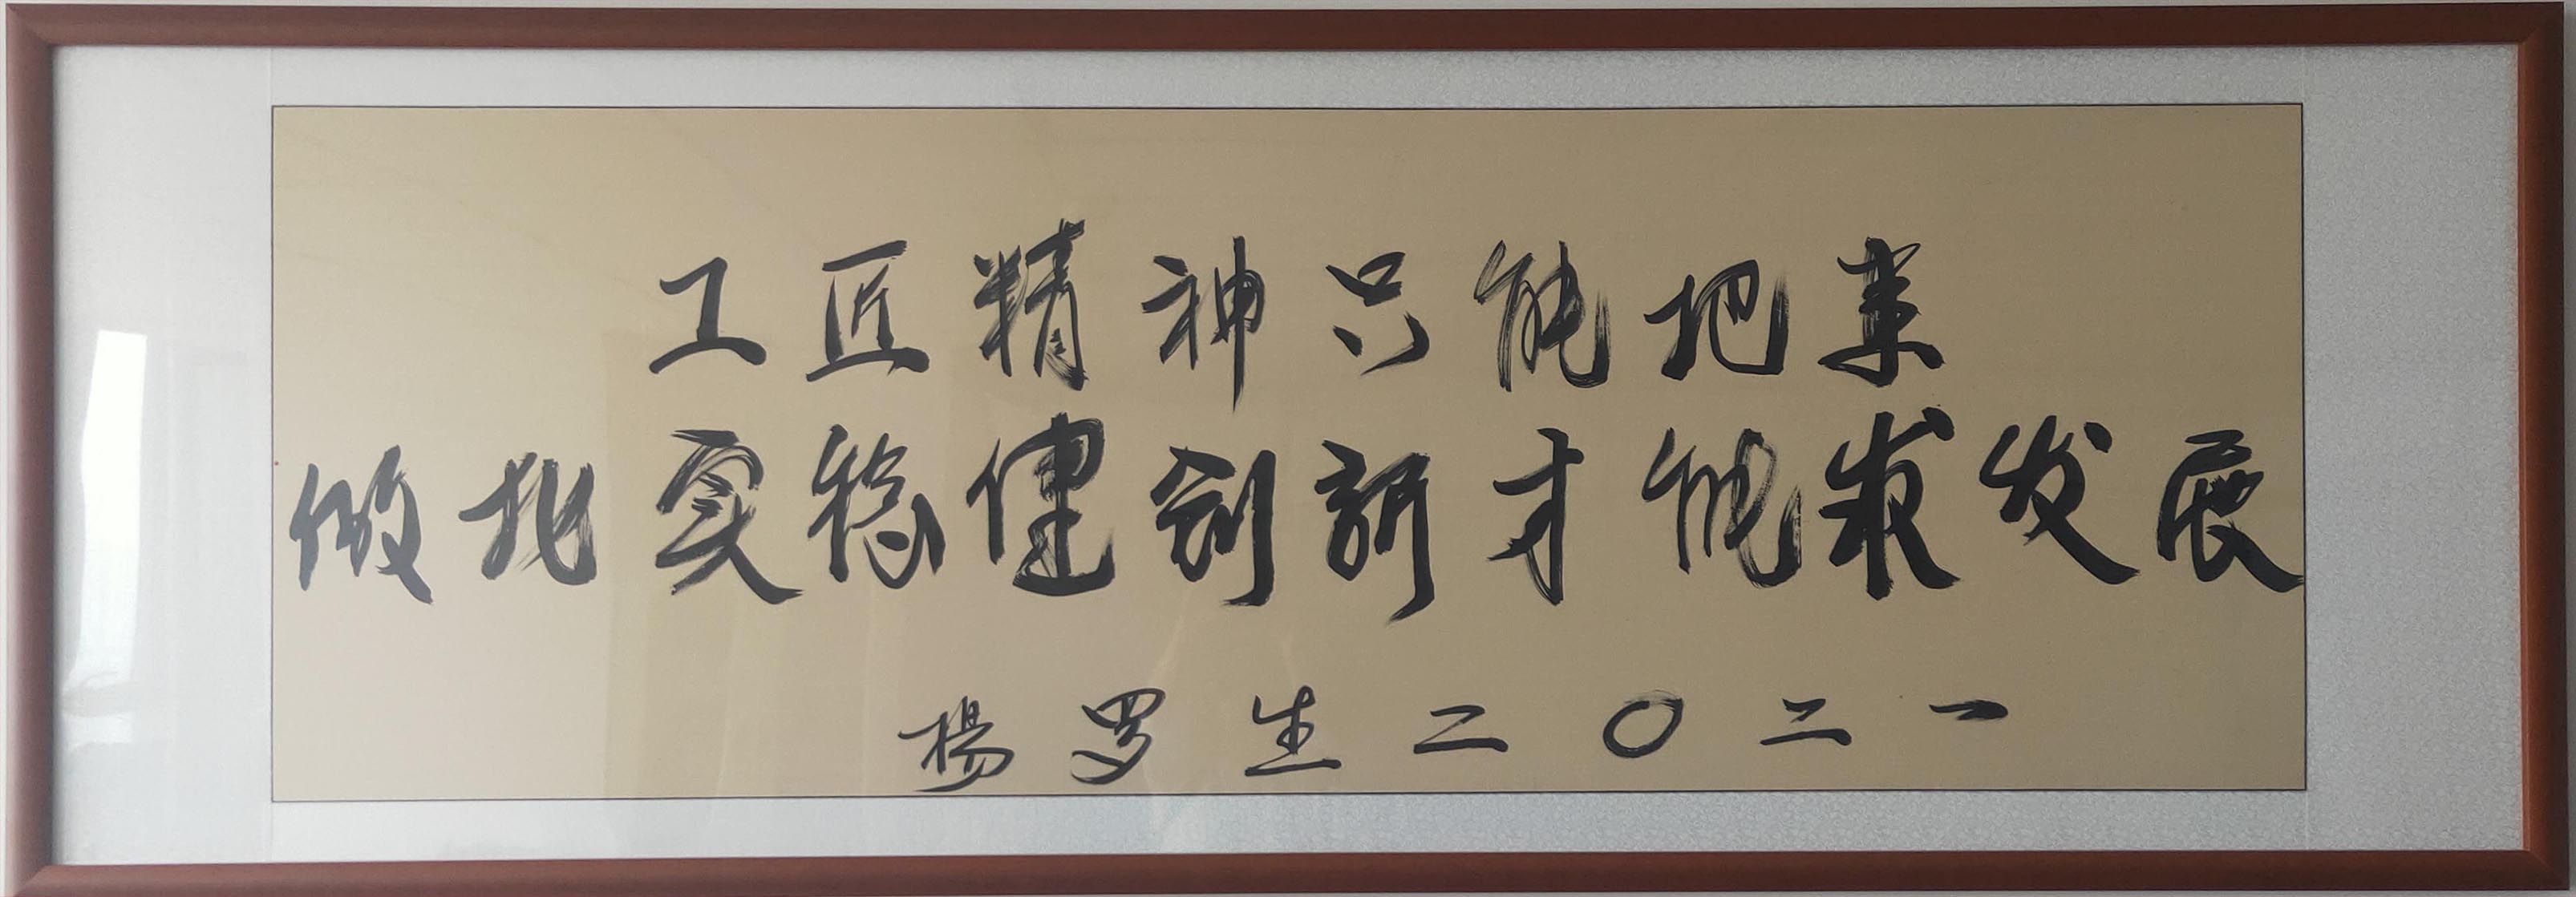 工匠精神只能把
做扎实稳健创新才能求发展
楊罗生二〇二一